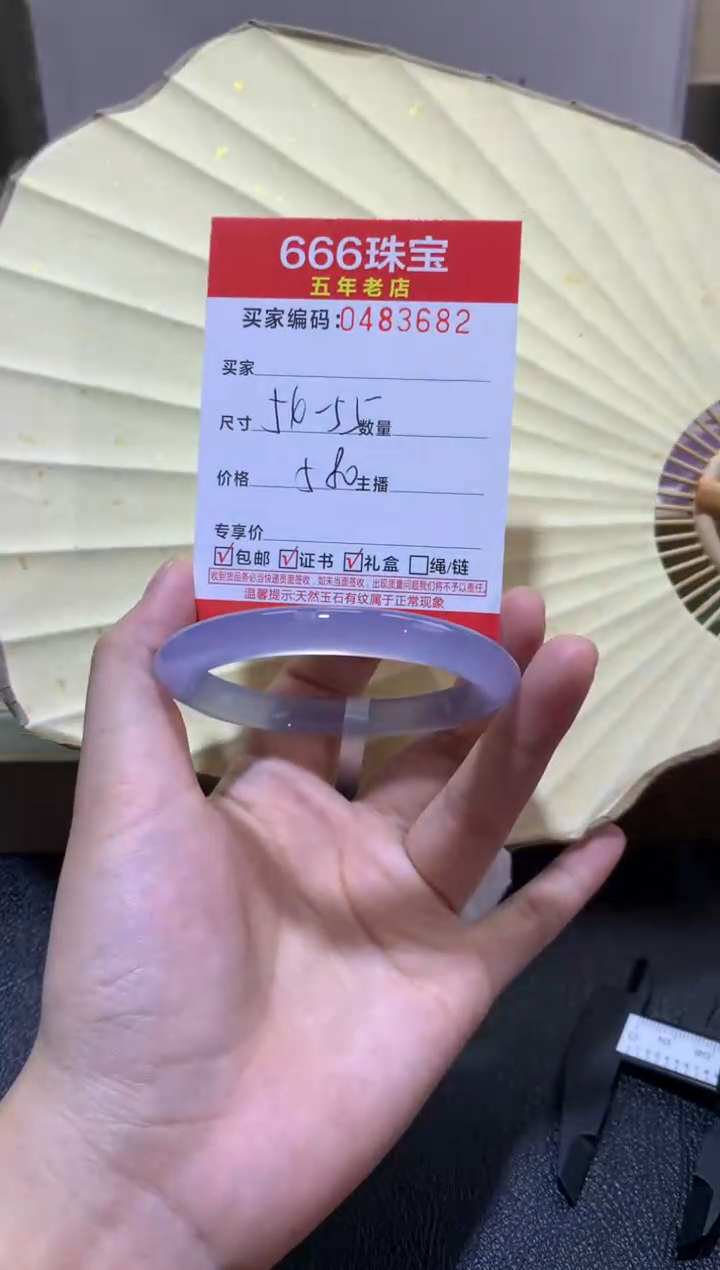 666珠宝
五年老店
买家编码:0483682
买家
尺寸 56-55 数量
价格 580 主播
专享价
☑包邮 ☑证书 ☑礼盒 ☐绳/链
收到货品务必当快递员面签收，如未当面签收，出现质量问题我们将不予以责任。
温馨提示:天然玉石有纹属于正常现象